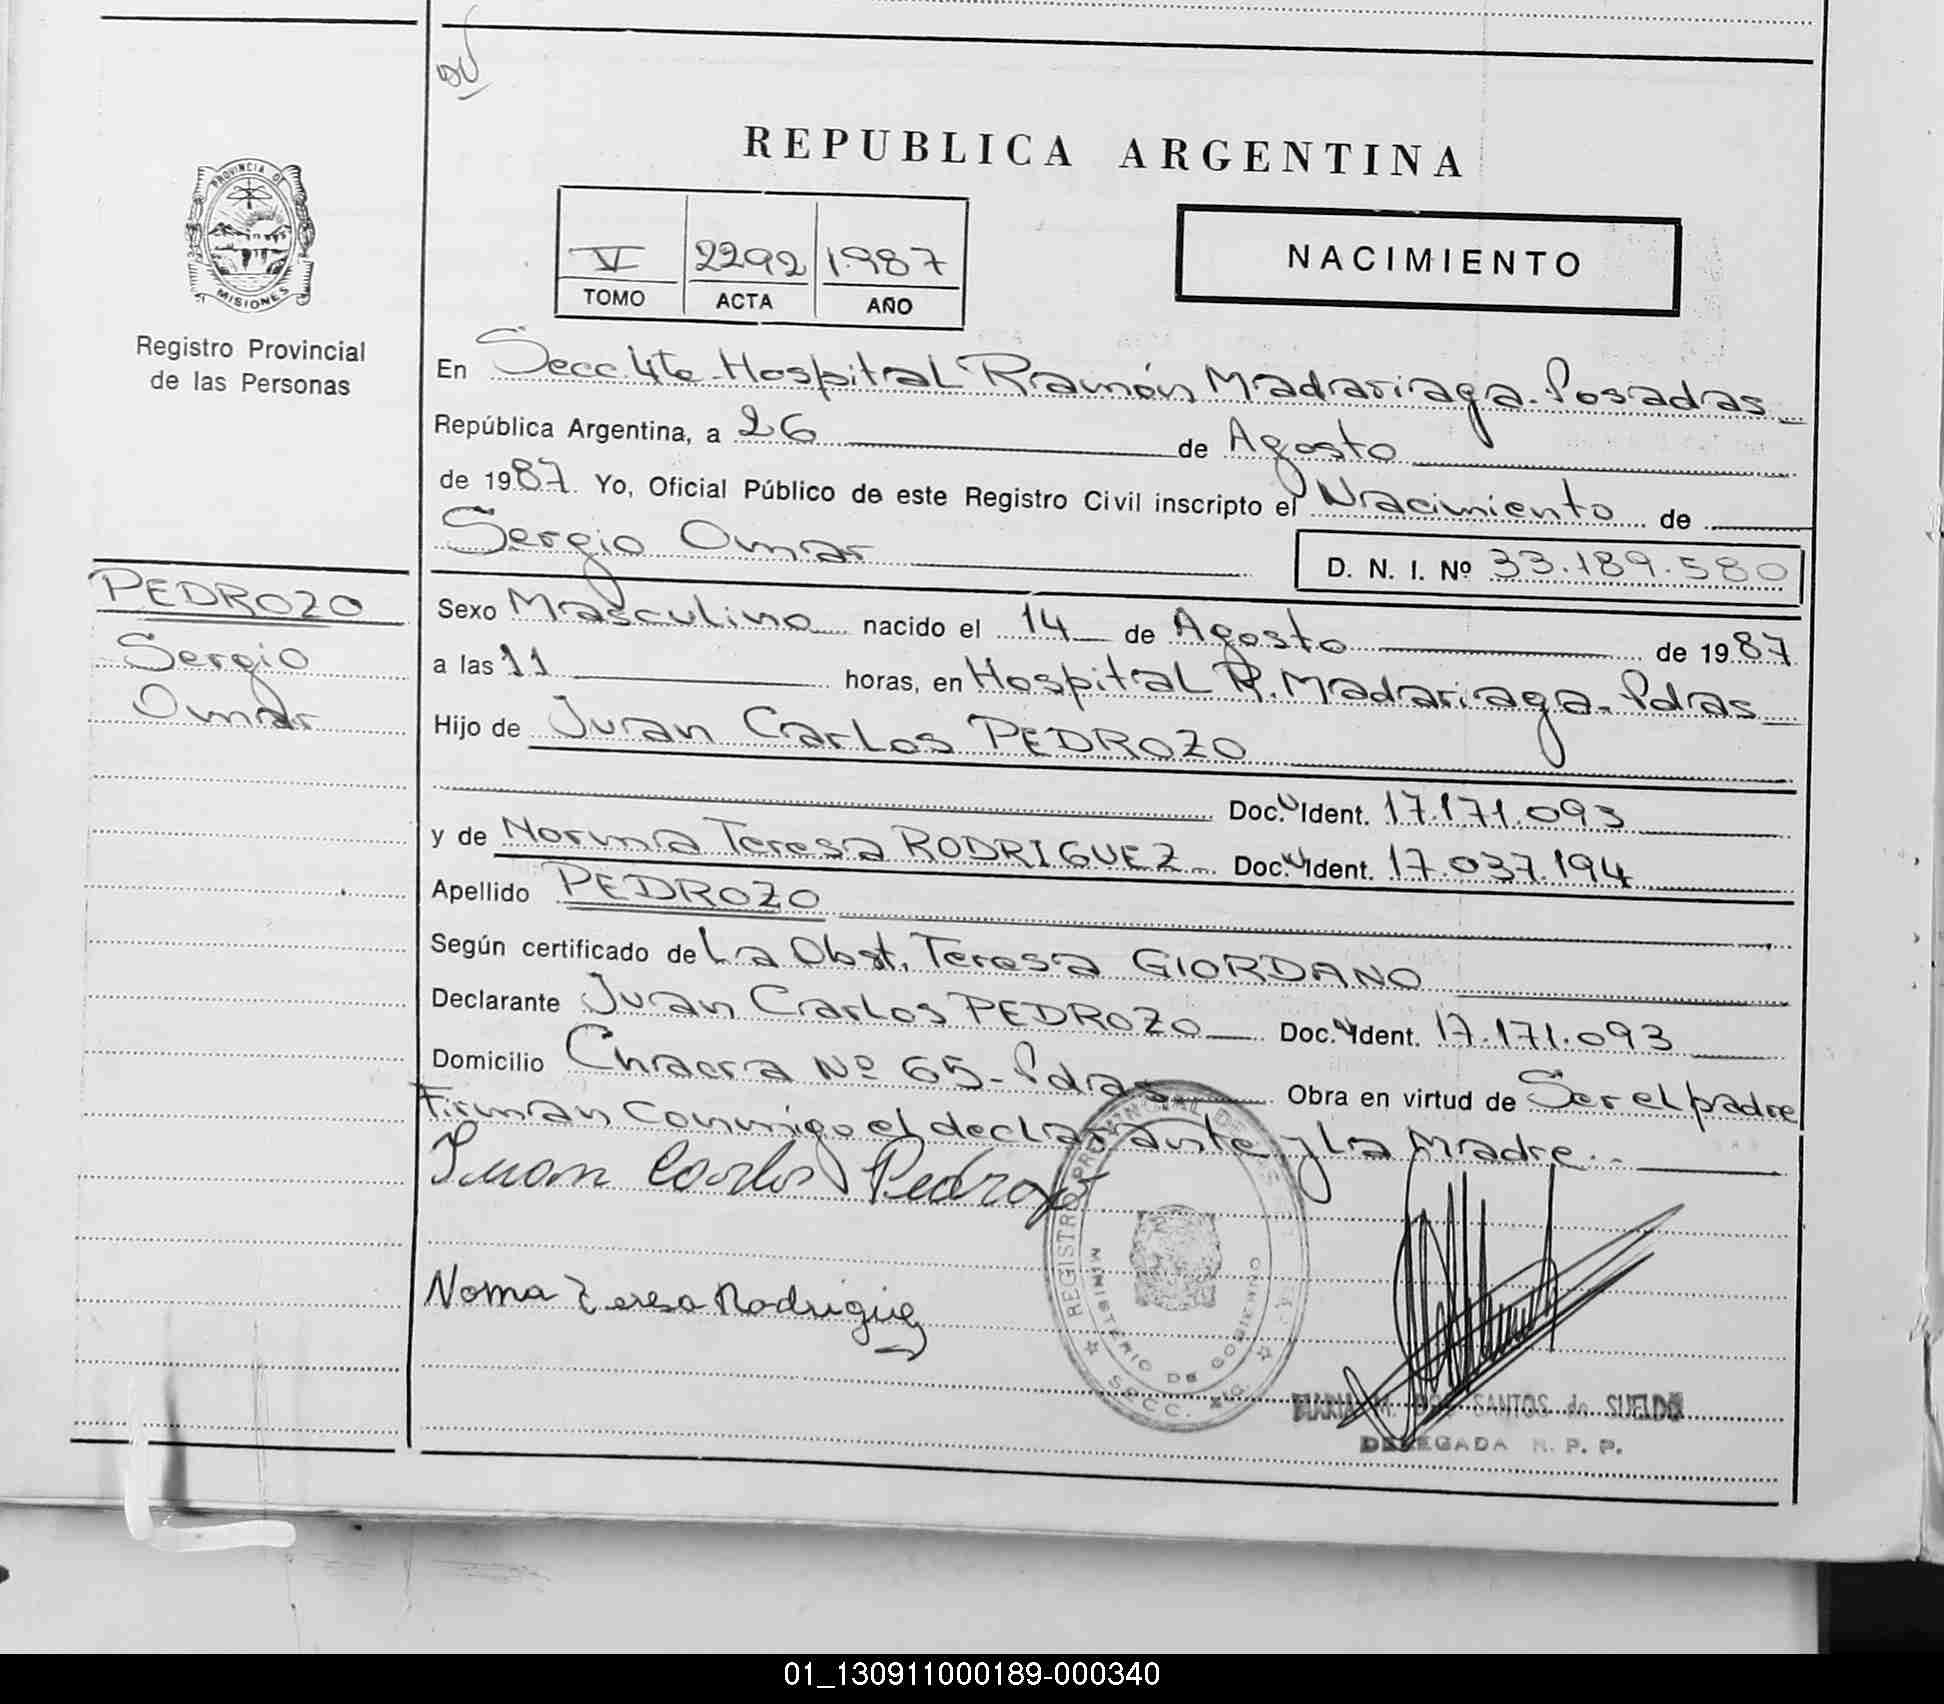 REPUBLICA ARGENTINA
V 2292 1987
TOMO ACTA AÑO
NACIMIENTO
PROVINCIA DE
MISIONES
Registro Provincial
de las Personas
En Secc. 4ta. Hospital Ramón Madariaga. Posadas
República Argentina, a 26 de Agosto
de 1987. Yo, Oficial Público de este Registro Civil inscripto el Nacimiento de
Sergio Omar
D. N. I. Nº 33.189.580
PEDROZO
Sergio
Omar
Sexo Masculino nacido el 14 de Agosto de 1987
a las 11 horas, en Hospital R. Madariaga. Pdas
Hijo de Juan Carlos PEDROZO
Doc. Ident. 17.171.093
y de Norma Teresa RODRIGUEZ Doc. Ident. 17.037.194
Apellido PEDROZO
Según certificado de La Obst. Teresa GIORDANO
Declarante Juan Carlos PEDROZO Doc. Ident. 17.171.093
Domicilio Chacra Nº 65 - Pdas Obra en virtud de Ser el padre
Firman conmigo el declarante y La Madre.
Juan Carlos Pedrozo
Noma Teresa Rodriguez
REGISTRO PROVINCIAL DE LAS
MINISTERIO DE GOBIERNO
SECC.
MARIA M. DOS SANTOS de SUELDO
DELEGADA R. P. P.
01_130911000189-000340